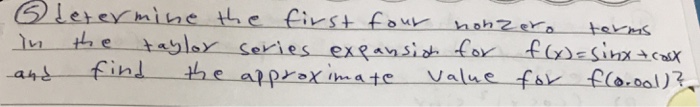 ⑤ determine the first four nonzero terms
in the taylor series expansion for f(x)=sinx+cosx
and find the approximate value for f(0.001)?